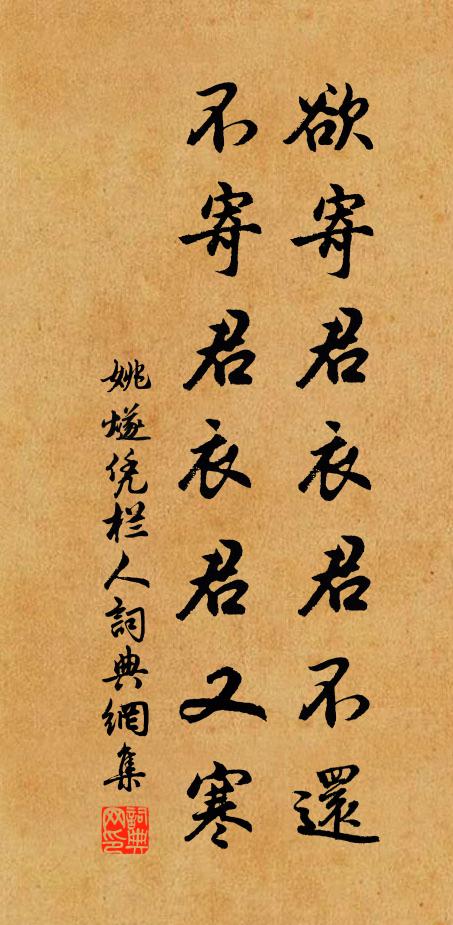 欲寄君衣君不還
不寄君衣君又寒
姚燧凭栏人詞典網集
詞典
网印